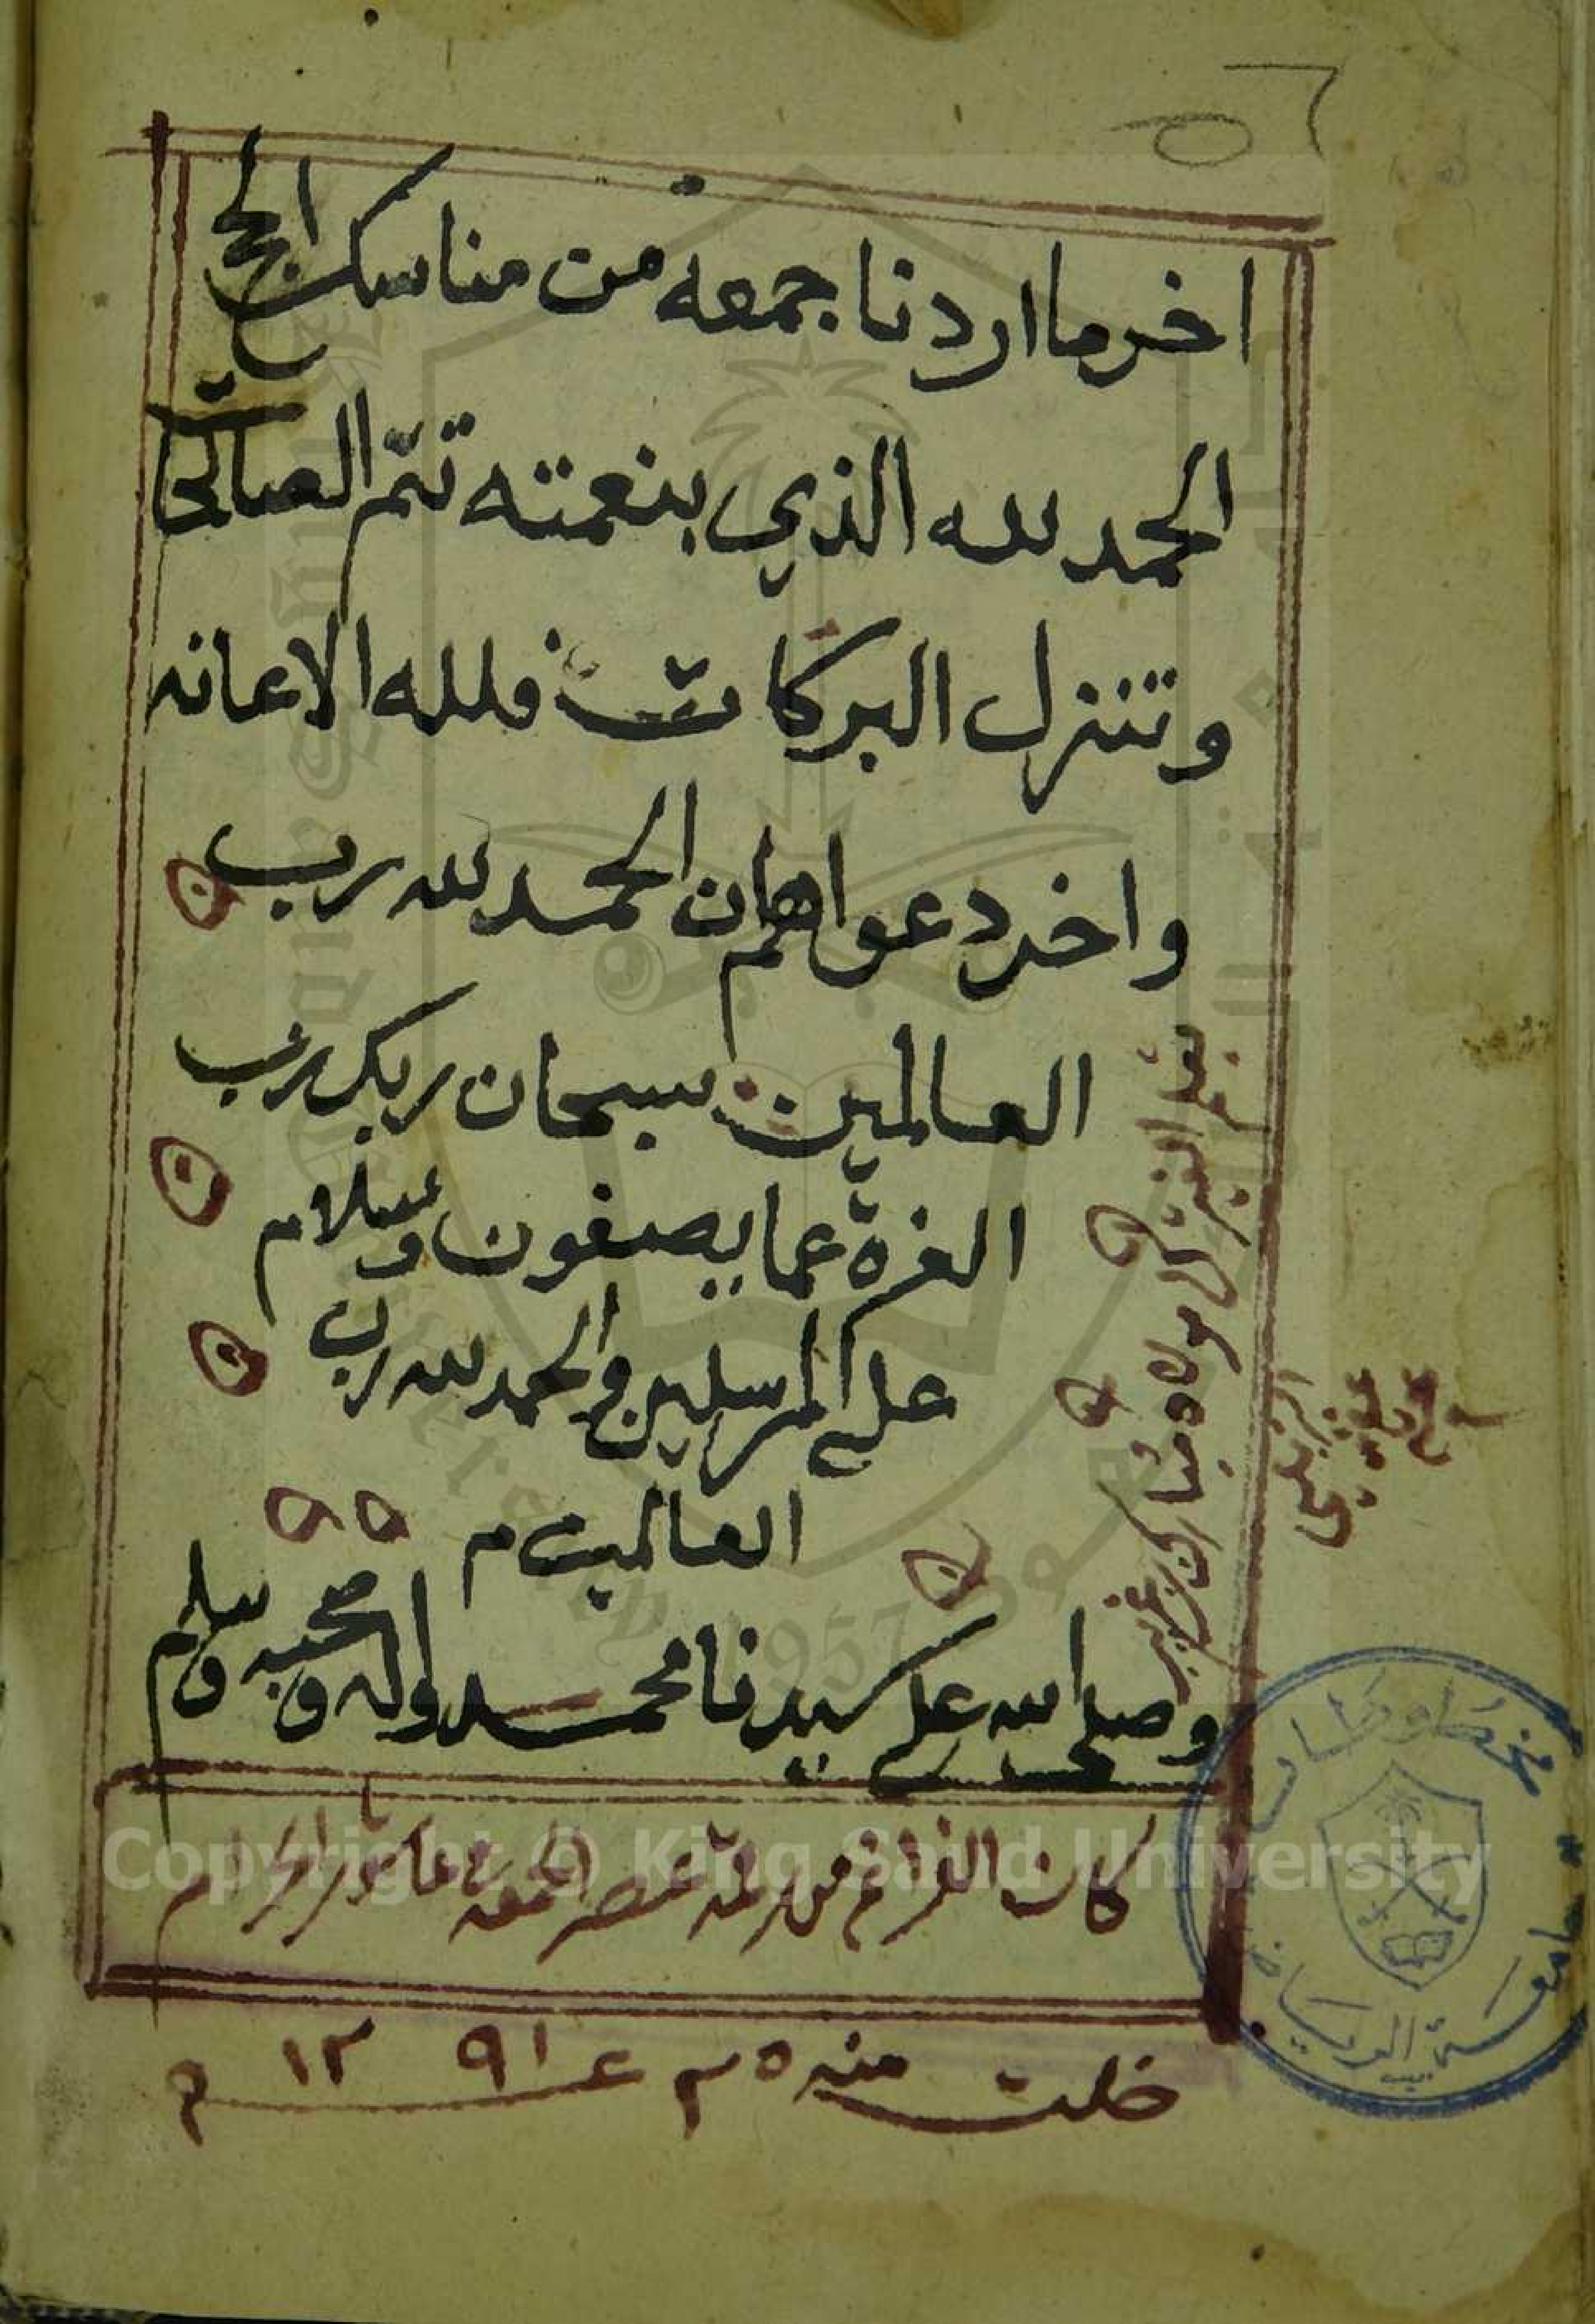 اخر ما اردنا جمعه من مناسك الحج
الحمد لله الذي بنعمته تتم الصالحات
وتتنزل البركات فلله الاعانه
واخر دعواهم ان الحمد لله رب
العالمين سبحان ربك رب
العزة عما يصفون وسلام
على المرسلين والحمد لله رب
العالمين م
وصلى الله على سيدنا محمد واله وصحبه وسلم
بقلم الفقير
كان الفراغ من رقمه عصر الجمعة عاشر
خلت منه ٥ م ١٢٩١ م
مخطوطات
جامعة الرياض
Copyright © King Saud University
1957